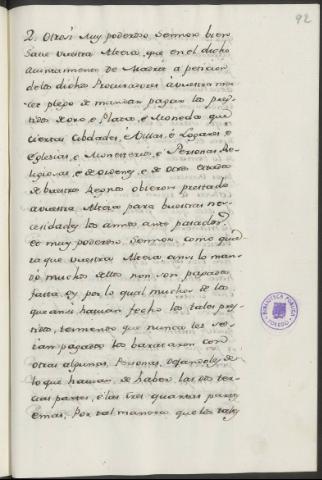 92
2. Otrosi Muy poderoso Sennor bien
Save vuestra Alteza, que en el dicho
aiuntamiento de Madrit a peticion
delos dichos Procuradores á vuestra mer
ced plogo de mandar pagar los pres
tidos de oro, e Plata, e Moneda que
ciertas Cibdades, e Villas, e Logares e
Eglesias, e Monesterios, e Personas Re
ligiosas, e de Ordenes, e de otros
de vuestros Regnos obieron prestado
a vuestra Alteza para vuestras ne
cesidades los annos ante pasados
e muy poderoso Sennor, como quie
ra que vuestra Alteza ansi lo man
dó muchos dellos non son pagados
fasta oy por lo qual muchos de los
que ansi havian fecho los tales pres
tidos, temiendo que nunca les se
rian pagados los barataron con
otras algunas Personas, dejandoles de
lo que havian de haber las dos ter
cias partes, e las tres quartas partes
e mas, Por tal manera que los tales
BIBLIOTECA PUBLICA
TOLEDO